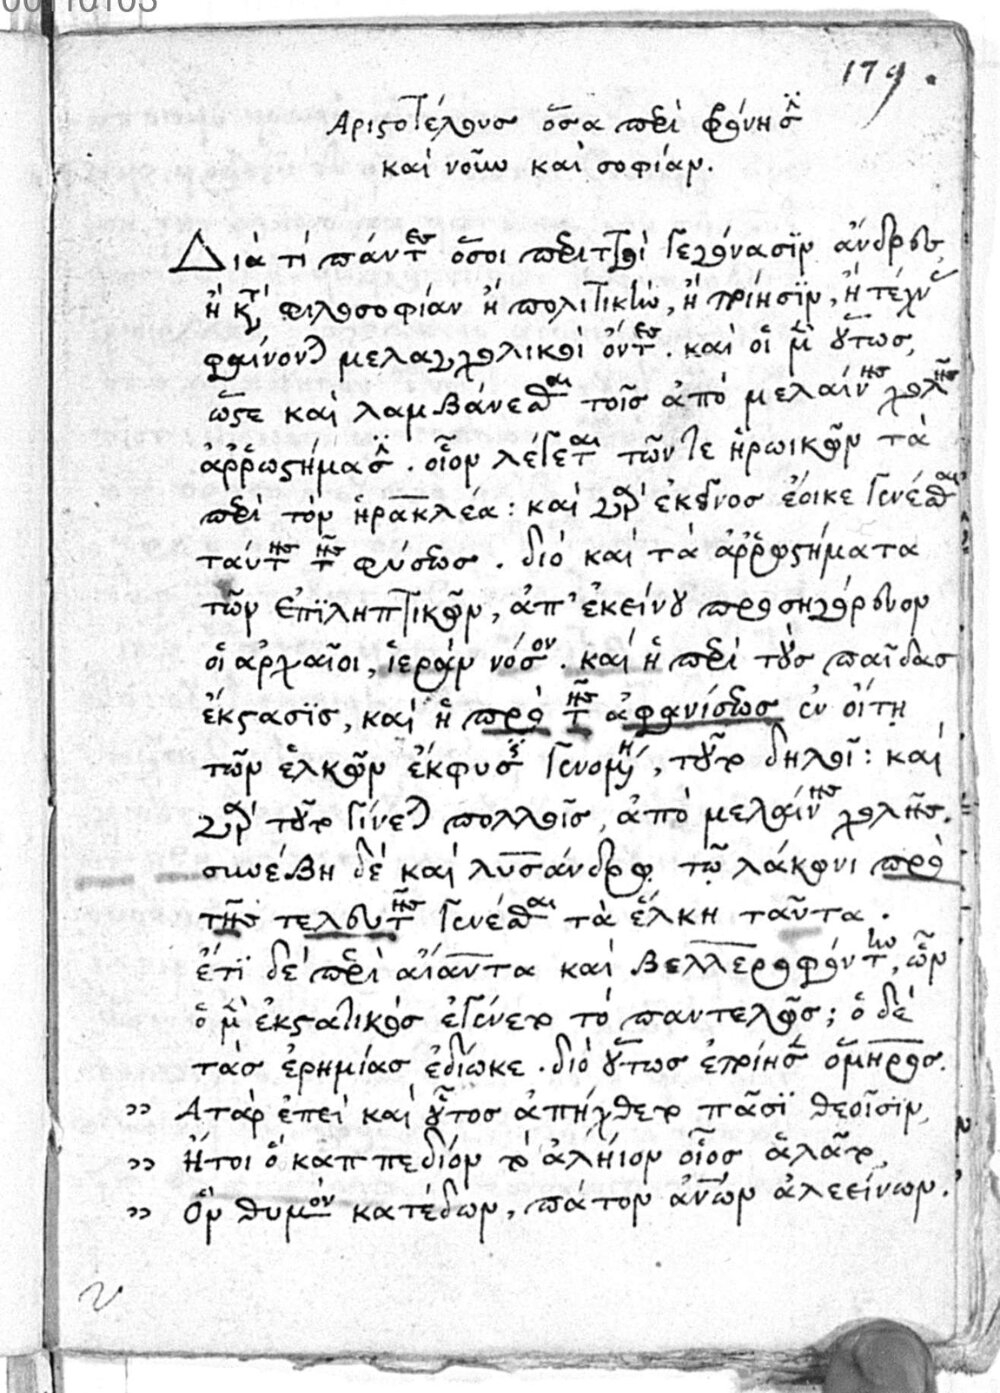 00110103
179.
Ἀριστοτέλους ὅσα περὶ φρόνησιν
καὶ νοῦν καὶ σοφίαν.
Διὰ τί πάντες ὅσοι περιττοὶ γεγόνασϊν ἄνδρες,
ἢ κατὰ φιλοσοφίαν ἢ πολιτικὴν, ἢ ποίησϊν, ἢ τέχνας
φαίνονται μελαγχολικοὶ ὄντες. καὶ οἱ μὲν οὕτως,
ὥστε καὶ λαμβάνεσθαι τοῖς ἀπὸ μελαίνης χολῆς
ἀῤῥωστήμασιν. οἷον λέγεται τῶν τε ἡρωικῶν τὰ
περὶ τὸν ἡρακλέα: καὶ γὰρ ἐκεῖνος ἔοικε γενέσθαι
ταύτης τῆς φύσεως. διὸ καὶ τὰ ἀῤῥωστήματα
τῶν ἐπϊληπτικῶν, ἀπ' ἐκείνου προσηγόρευον
οἱ ἀρχαῖοι, ἱερὰν νόσον. καὶ ἡ περὶ τοὺς παῖδας
ἔκστασϊς, καὶ ἡ πρὸ τῆς ἀφανίσεως ἐν οἴτῃ
τῶν ἑλκῶν ἔκφυσϊς γενομένη, τοῦτο δηλοῖ: καὶ
γὰρ τοῦτο γίνεται πολλοῖς, ἀπὸ μελαίνης χολῆς.
συνέβη δὲ καὶ λυσάνδρῳ τῷ λάκωνι πρὸ
τῆς τελευτῆς γενέσθαι τὰ ἕλκη ταῦτα.
ἔτϊ δὲ περὶ αἴαντα καὶ βελλεροφόντην, ὧν
ὁ μὲν ἐκστατικὸς ἐγένετο παντελῶς; ὁ δὲ
τὰς ἐρημίας ἐδίωκε. διὸ οὕτως ἐποίησεν ὅμηρος.
" Ἀτὰρ ἐπεὶ καὶ οὗτος ἀπήχθετο πᾶσϊ θεοῖσϊν,
" Ἤτοι ὁ κὰπ πεδίον τὸ ἀλήϊον οἶος ἀλᾶτο,
" Ὃν θυμὸν κατέδων, πάτον ἀνθρώπων ἀλεείνων.